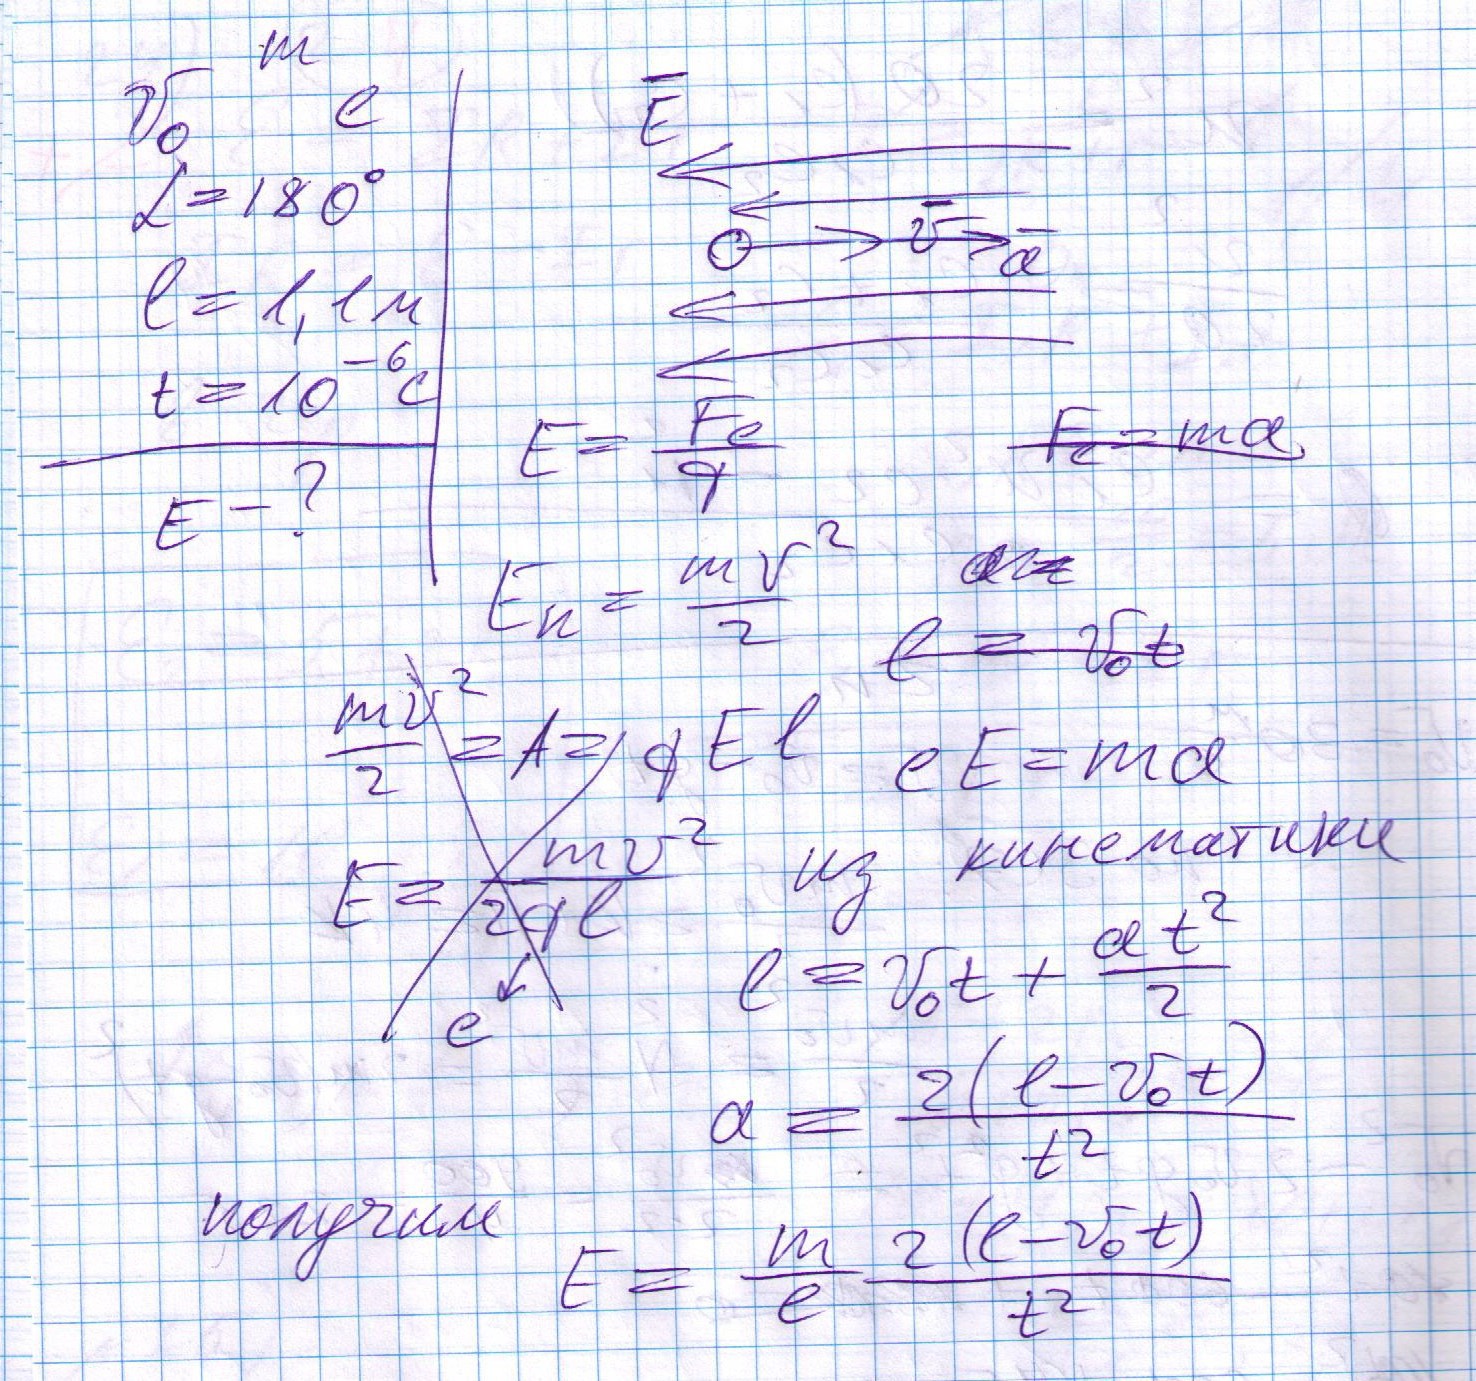 m
v₀ e
α = 180°
l = 1,1 м
t = 10⁻⁶ с
E - ?
E̅
v̅ a̅
E = Fe/q
Fe = ma
Eк = mv²/2
a =
l = v₀t
mv²/2 = A = qEl
eE = ma
E = mv²/2ql
e
из кинематики
l = v₀t + at²/2
a = 2(l - v₀t)/t²
получим
E = m/e 2(l - v₀t)/t²